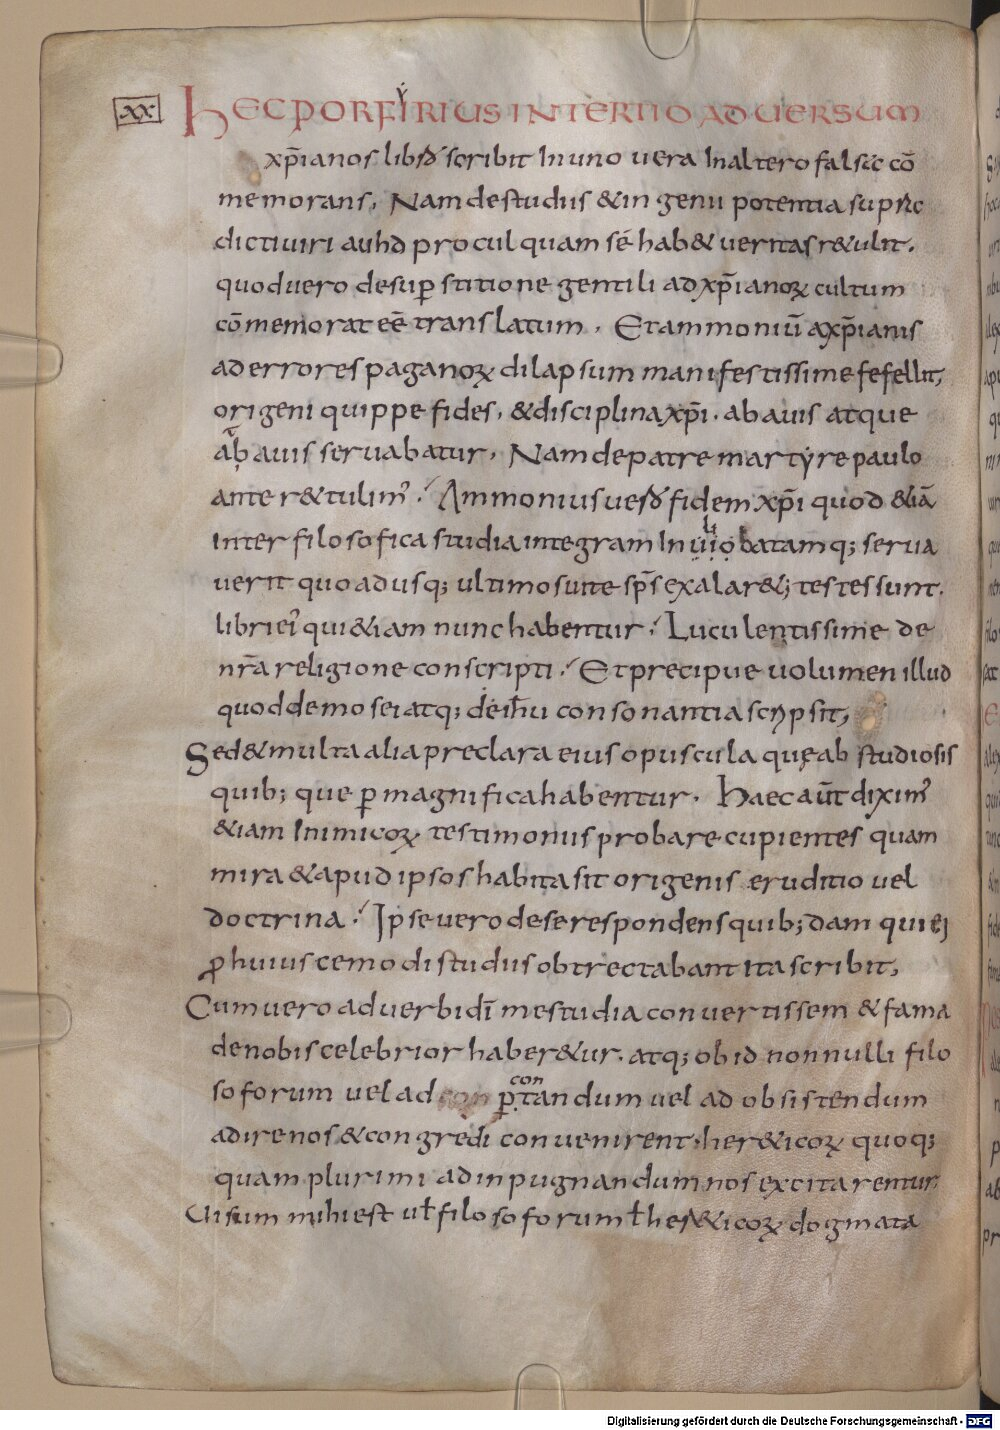 XX HEC PORFIRIUS IN TERTIO ADUERSUM
y
xp̄ianos libr̄ scribit In uno uera In altero falsa & cō
memorans, Nam de studiis & in genii potentia supra
dicti uiri auhd procul quam sē hab& ueritas r&ulit.
quod uero de sup̱ stitione gentili ad xp̄ianoꝝ cultum
cōmemorat eē translatum. Et ammoniū a xp̄ianis
ad errores paganoꝝ dilapsum manifestissime fefellit,
origeni quippe fides, & disciplina xp̄i. ab auis atque
ab auis seruabatur, Nam de patre martẏre paulo
ante r&tulim᾿. Ammonius uero fidem xp̄i quod &iā
inter filosofica studia integram In uiobatam q; serua
li
uerit quo ad usq; ultimo suūte sp̄s exalar&; testes sunt.
libri ei᾿ qui &iam nunc habentur. Luculentissime de
nr̄a religione conscripti. Et precipue uolumen illud
quod de mosei atq; de ih̄u consonantia scripsit,
Sed & multa alia preclara eius opuscula quę ab studiosis
quib; que ꝑ magnifica habentur. haec aūt dixim᾿
&iam Inimicoꝝ testimoniis probare cupientes quam
mira & apud ipsos habita sit origenis eruditio uel
doctrina. Ipse uero de se respondens quib;dam qui ei
ꝓ huiuscemodi studiis obtrectabant ita scribit,
Cum uero ad uerbi dī me studia conuertissem & fama
de nobis celebrior haber&ur. atq; ob id nonnulli filo
soforum uel ad con p̱tandum uel ad obsistendum
con
adire nos & congredi conuenirent. her&icoꝝ quoq;
quam plurimi ad inpugnandum nos excitarentur
Uisum mihi est ut ł filosoforum ł her&icoꝝ dogmata
Digitalisierung gefördert durch die Deutsche Forschungsgemeinschaft - DFG